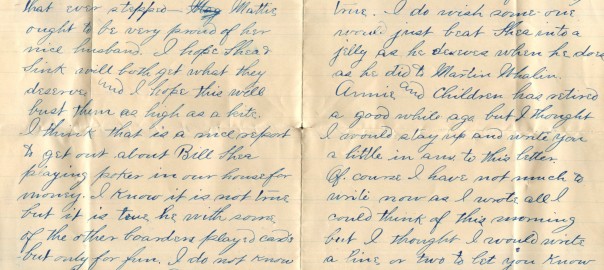 that ever stepped - Mattie
ought to be very proud of her
nice husband. I hope Shea &
Sink will both get what they
deserve and I hope this will
bust them as high as a kite.
I think that is a nice report
to get out about Bill Shea
playing poker in our house for
money. I know it is not true
but it is true he with some
of the other boarders played cards
but only for fun. I do not know
true. I do wish some one
would just beat Shea into a
jelly as he deserves when he does
as he did to Martin Whalin.
Annie and children has retired
a good while ago but I thought
I would stay up and write you
a little in ans. to this letter.
Of course I have not much to
write now as I wrote all I
could think of this morning
but I thought I would write
a line or two to let you know